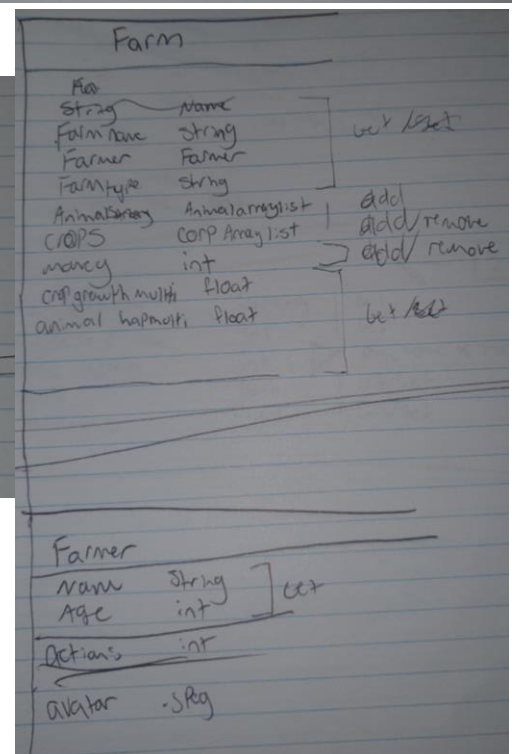 Farm
Fa
String Name
Farm name String
Farmer Farmer
Farm type String
get / set
Animal Animal arraylist add
crops corp Array list add/remove
money int add/remove
crop growth multi float
animal hap multi float
get / set
Farmer
Name String
Age int
get
actions int
avatar